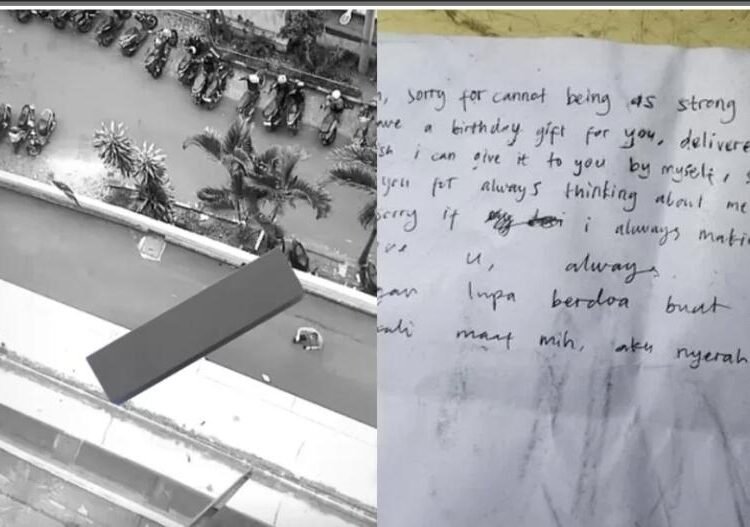 , sorry for cannot being as strong
ave a birthday gift for you, delivere
sh i can give it to you by myself,
you for always thinking about me
sorry if i always makin
ve u, always
gan lupa berdoa buat
kali maaf mih, aku nyerah